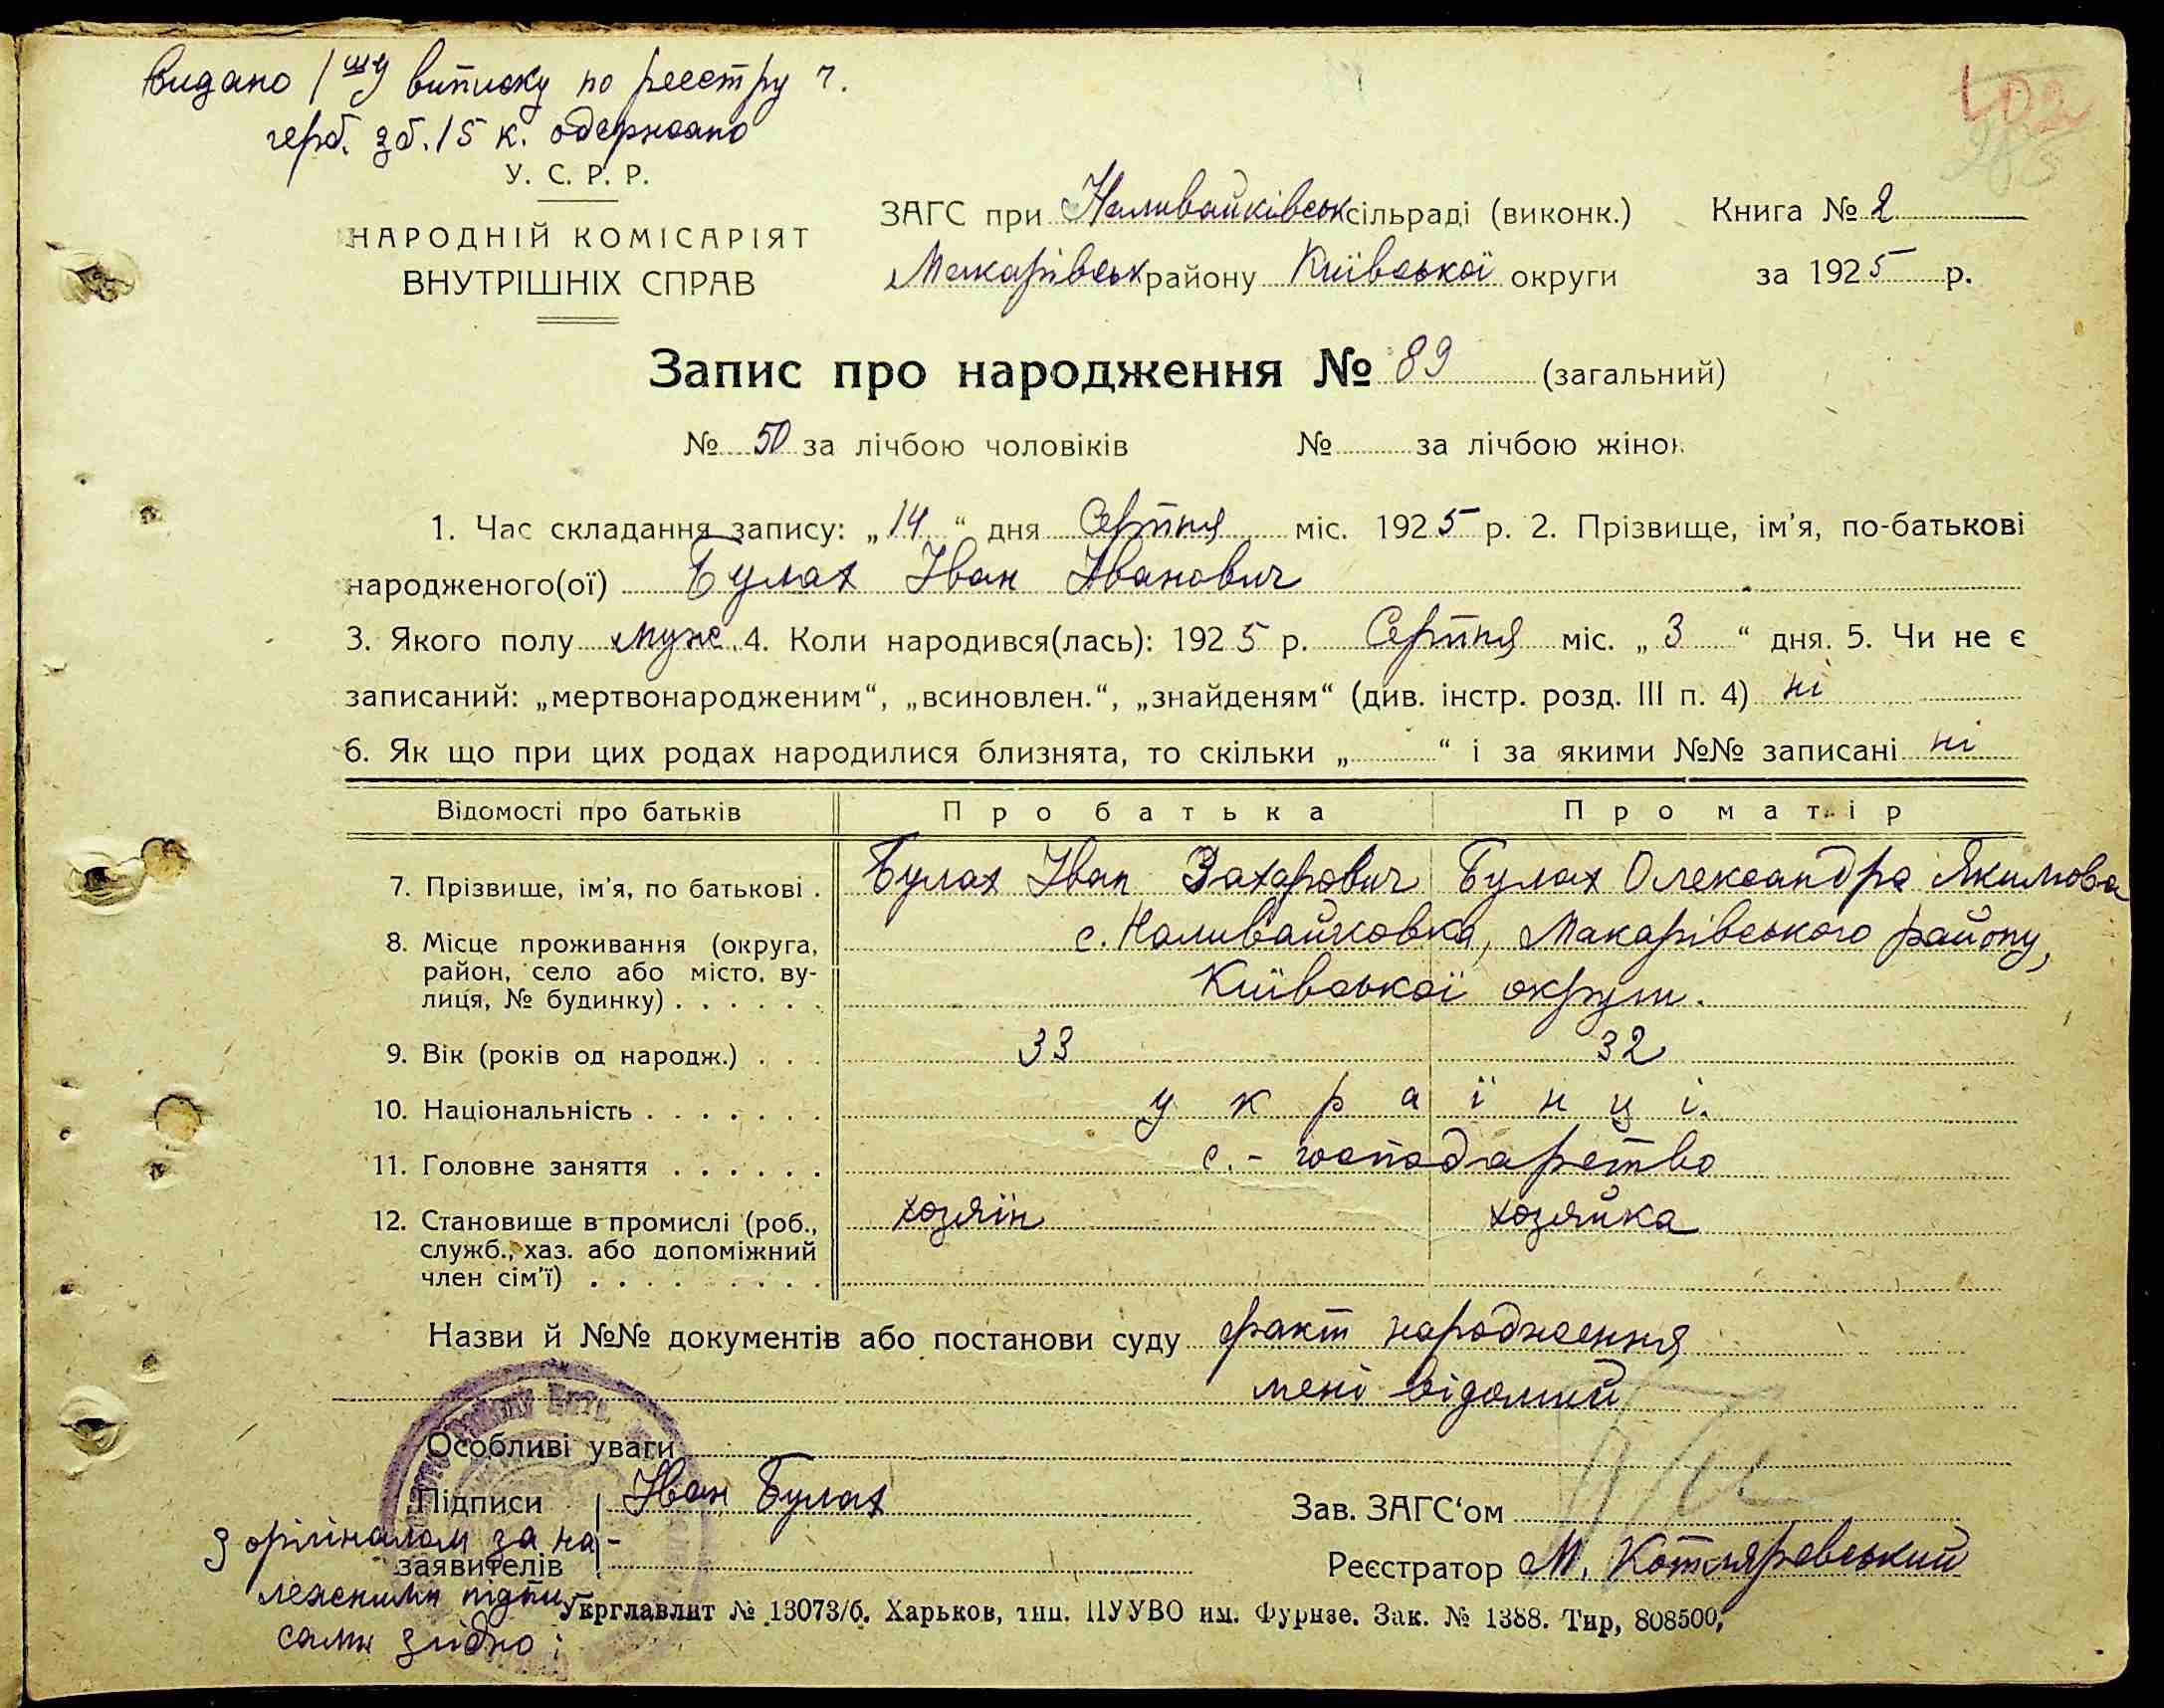 Видано 1шу виписку по реєстру ч.
герб. зб. 15 к. одержано
У. С. Р. Р.
НАРОДНІЙ КОМІСАРІЯТ
ВНУТРІШНІХ СПРАВ
ЗАГС при Наливайківськ сільраді (виконк.) Книга № 2
Макарівськ району Київської округи за 1925 р.
102
Запис про народження № 89 (загальний)
№ 50 за лічбою чоловіків № за лічбою жінок
1. Час складання запису: „14“ дня Серпня міс. 1925 р. 2. Прізвище, ім'я, по-батькові
народженого(ої) Булах Іван Іванович
3. Якого полу муж. 4. Коли народився(лась): 1925 р. Серпня міс. „3“ дня. 5. Чи не є
записаний: „мертвонародженим“, „всиновлен.“, „знайденям“ (див. інстр. розд. III п. 4) ні
6. Як що при цих родах народилися близнята, то скільки „ “ і за якими №№ записані ні
Відомості про батьків Про батька Про матір
7. Прізвище, ім'я, по батькові . Булах Іван Захарович Булах Олександра Якимова
8. Місце проживання (округа, с. Наливайковка, Макарівського району,
район, село або місто, ву-
лиця, № будинку) . . . . . . Київської округи.
9. Вік (років од народж.) . . . 33 32
10. Національність . . . . . . . українці.
11. Головне заняття . . . . . . с.-господарство
12. Становище в промислі (роб., хозяїн хозяйка
служб., хаз. або допоміжний
член сім'ї) . . . . . . . . .
Назви й №№ документів або постанови суду факт народження
мені відомий
Особливі уваги
Підписи Іван Булах Зав. ЗАГС'ом
З оріґіналом за на-
заявителів Реєстратор М. Котляревський
лежними підпи-
Укрглавлит № 13073/б. Харьков, тип. ПУУВО им. Фрунзе. Зак. № 1388. Тир, 808500,
сами згідно: